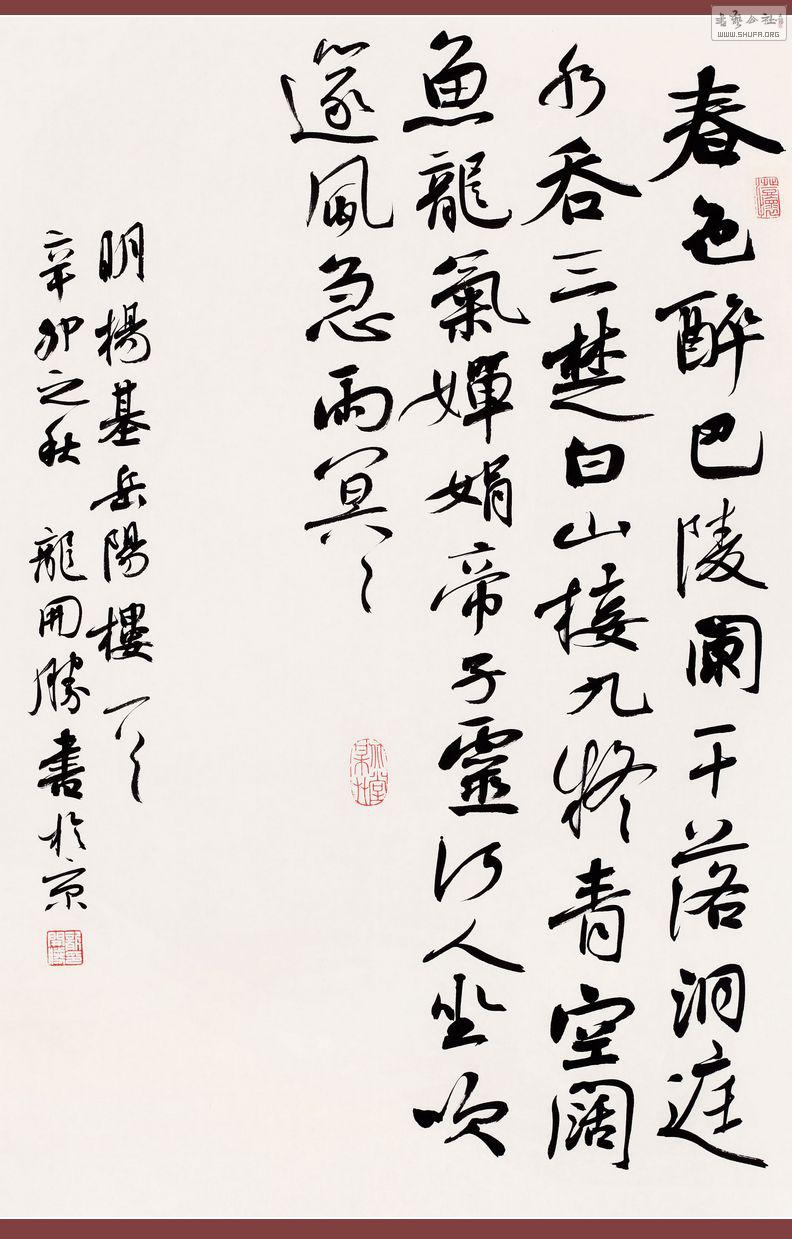 春色醉巴陵闌干落洞庭
水吞三楚白山接九疑青空闊
魚龍氣嬋娟帝子靈何人坐吹
邃風急雨冥〻
明楊基岳陽樓一首
辛卯之秋 龍開勝書於京
書藝公社
WWW.SHUFA.ORG